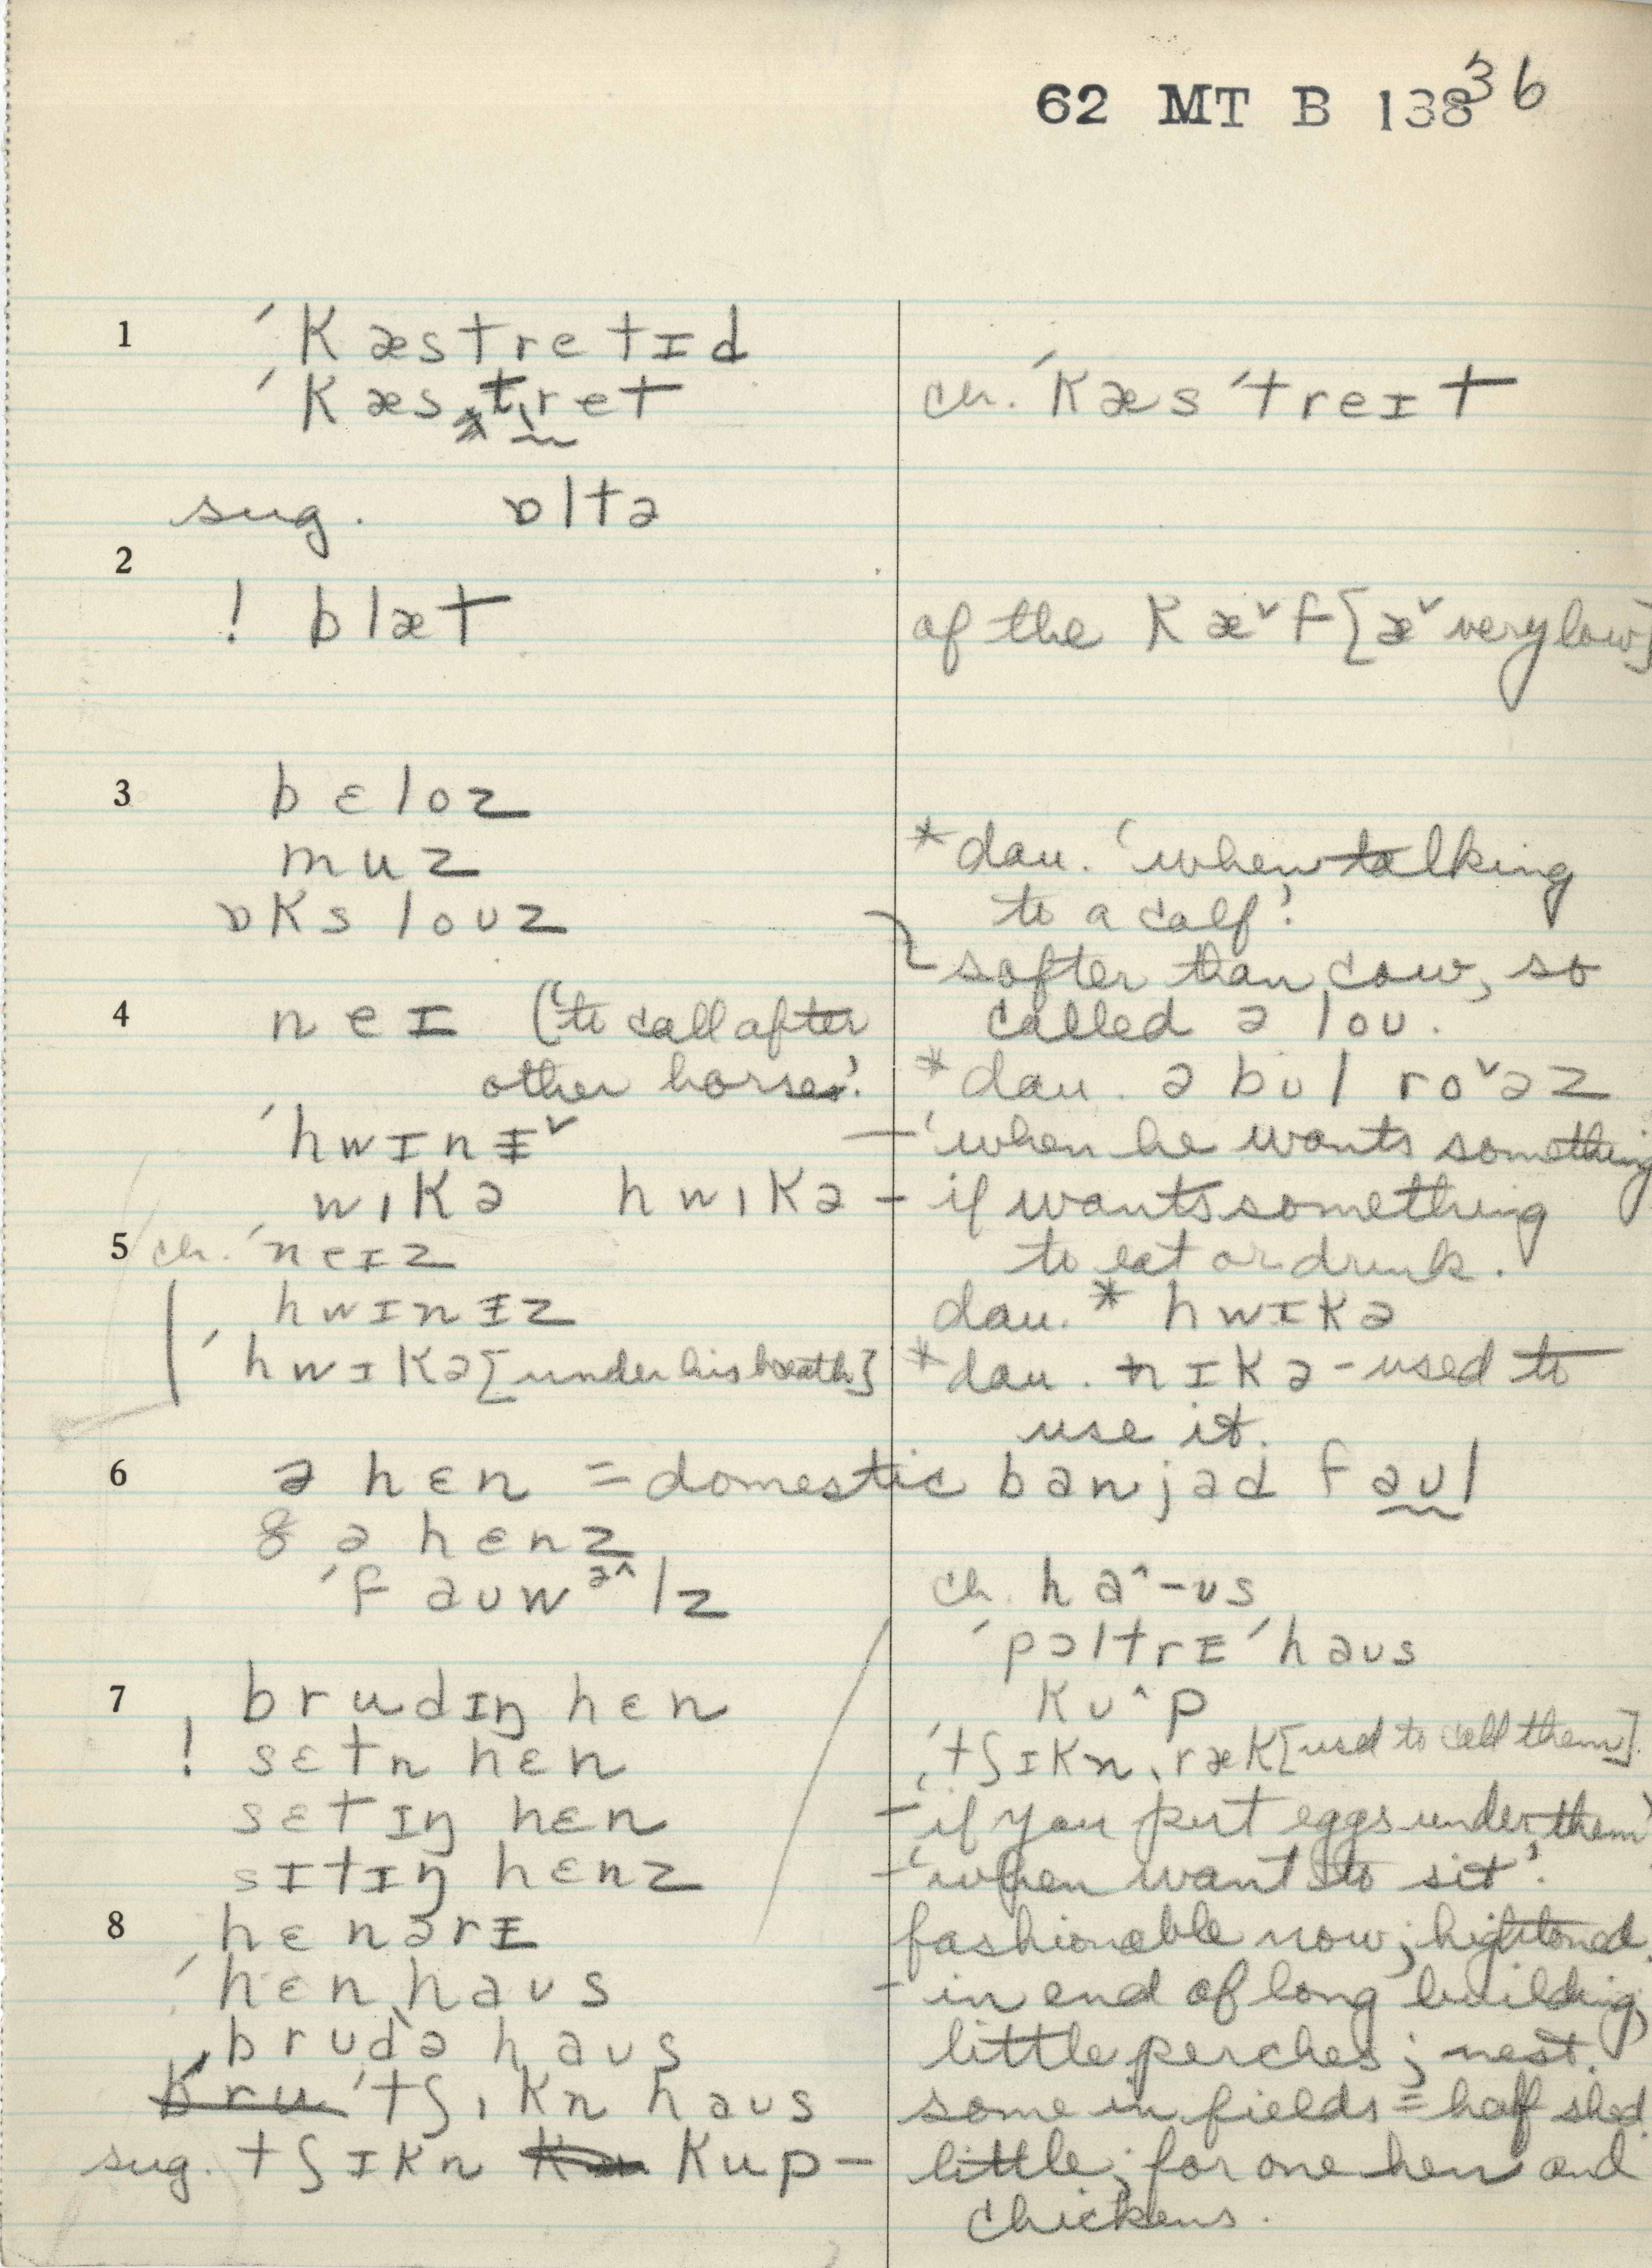 62 MT B 138 36
1 ˈkæstretɪd
ˈkæsˌtret
ch. ˈkæsˈtreɪt
sug. ɒltə
2
! blæt
of the kæ˅f [æ˅ very low]
3 bɛloz
muz
ɒks louz
*dau. 'when talking
to a calf'
softer than cow, so
called ə lou.
4 neɪ ('to call after
other horse.'
*dau. ə bul ro˅əz
ˈhwɪnɪ˅ — 'when he wants something
wikə hwikə – if wants something
to eat or drink.
5 ch. ˈneɪz
hwɪnɪz
dau. * hwɪkə
ˈhwɪkə [under his breath]
*dau. nɪkə – used to
use it.
6 ə hɛn = domestic banjad faul
8 ə hɛnz
ˈfauwə^lz
7 brudɪŋ hɛn
! sɛtn hɛn
sɛtɪŋ hɛn
sɪtɪŋ hɛnz
ch. ha^-us
ˈpɔltrɪˈhaus
ku^p
ˈtʃɪknˌræk [used to call them].
– 'if you put eggs under them'
– 'when want to sit'.
8 hɛnərɪ
ˈhɛnˌhaus
brudə haus
bru ˈtʃikn haus
sug. tʃɪkn kup –
fashionable now; hightoned.
– in end of long building,
little perches; nest.
some in fields = half shed.
little; for one hen and
chickens.